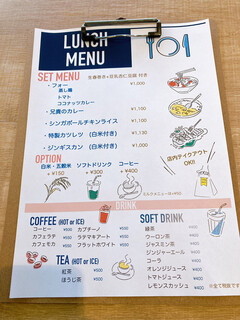 LUNCH
MENU
SET MENU
¥1,000
・フォー
蒸し鶏
トマト
ココナッツカレー
・兄貴のカレー ¥1,100
・シンガポールチキンライス ¥1,100
・特製カツレツ (白米付き) ¥1,130
・ジンギスカン (白米付き) ¥1,200
店内テイクアウト
OK!!
OPTION
白米・五穀米 ソフトドリンク コーヒー
+¥150 +¥300 +¥200
DRINK
COFFEE (HOT or ICE)
コーヒー
カフェラテ ラテマキアート
カフェモカ フラットホワイト
TEA (HOT or ICE)
紅茶 ¥400
ほうじ茶
SOFT DRINK
緑茶
ウーロン茶
ジャスミン茶
ジンジャーエール
コーラ
オレンジジュース
トマトジュース
レモンスカッシュ